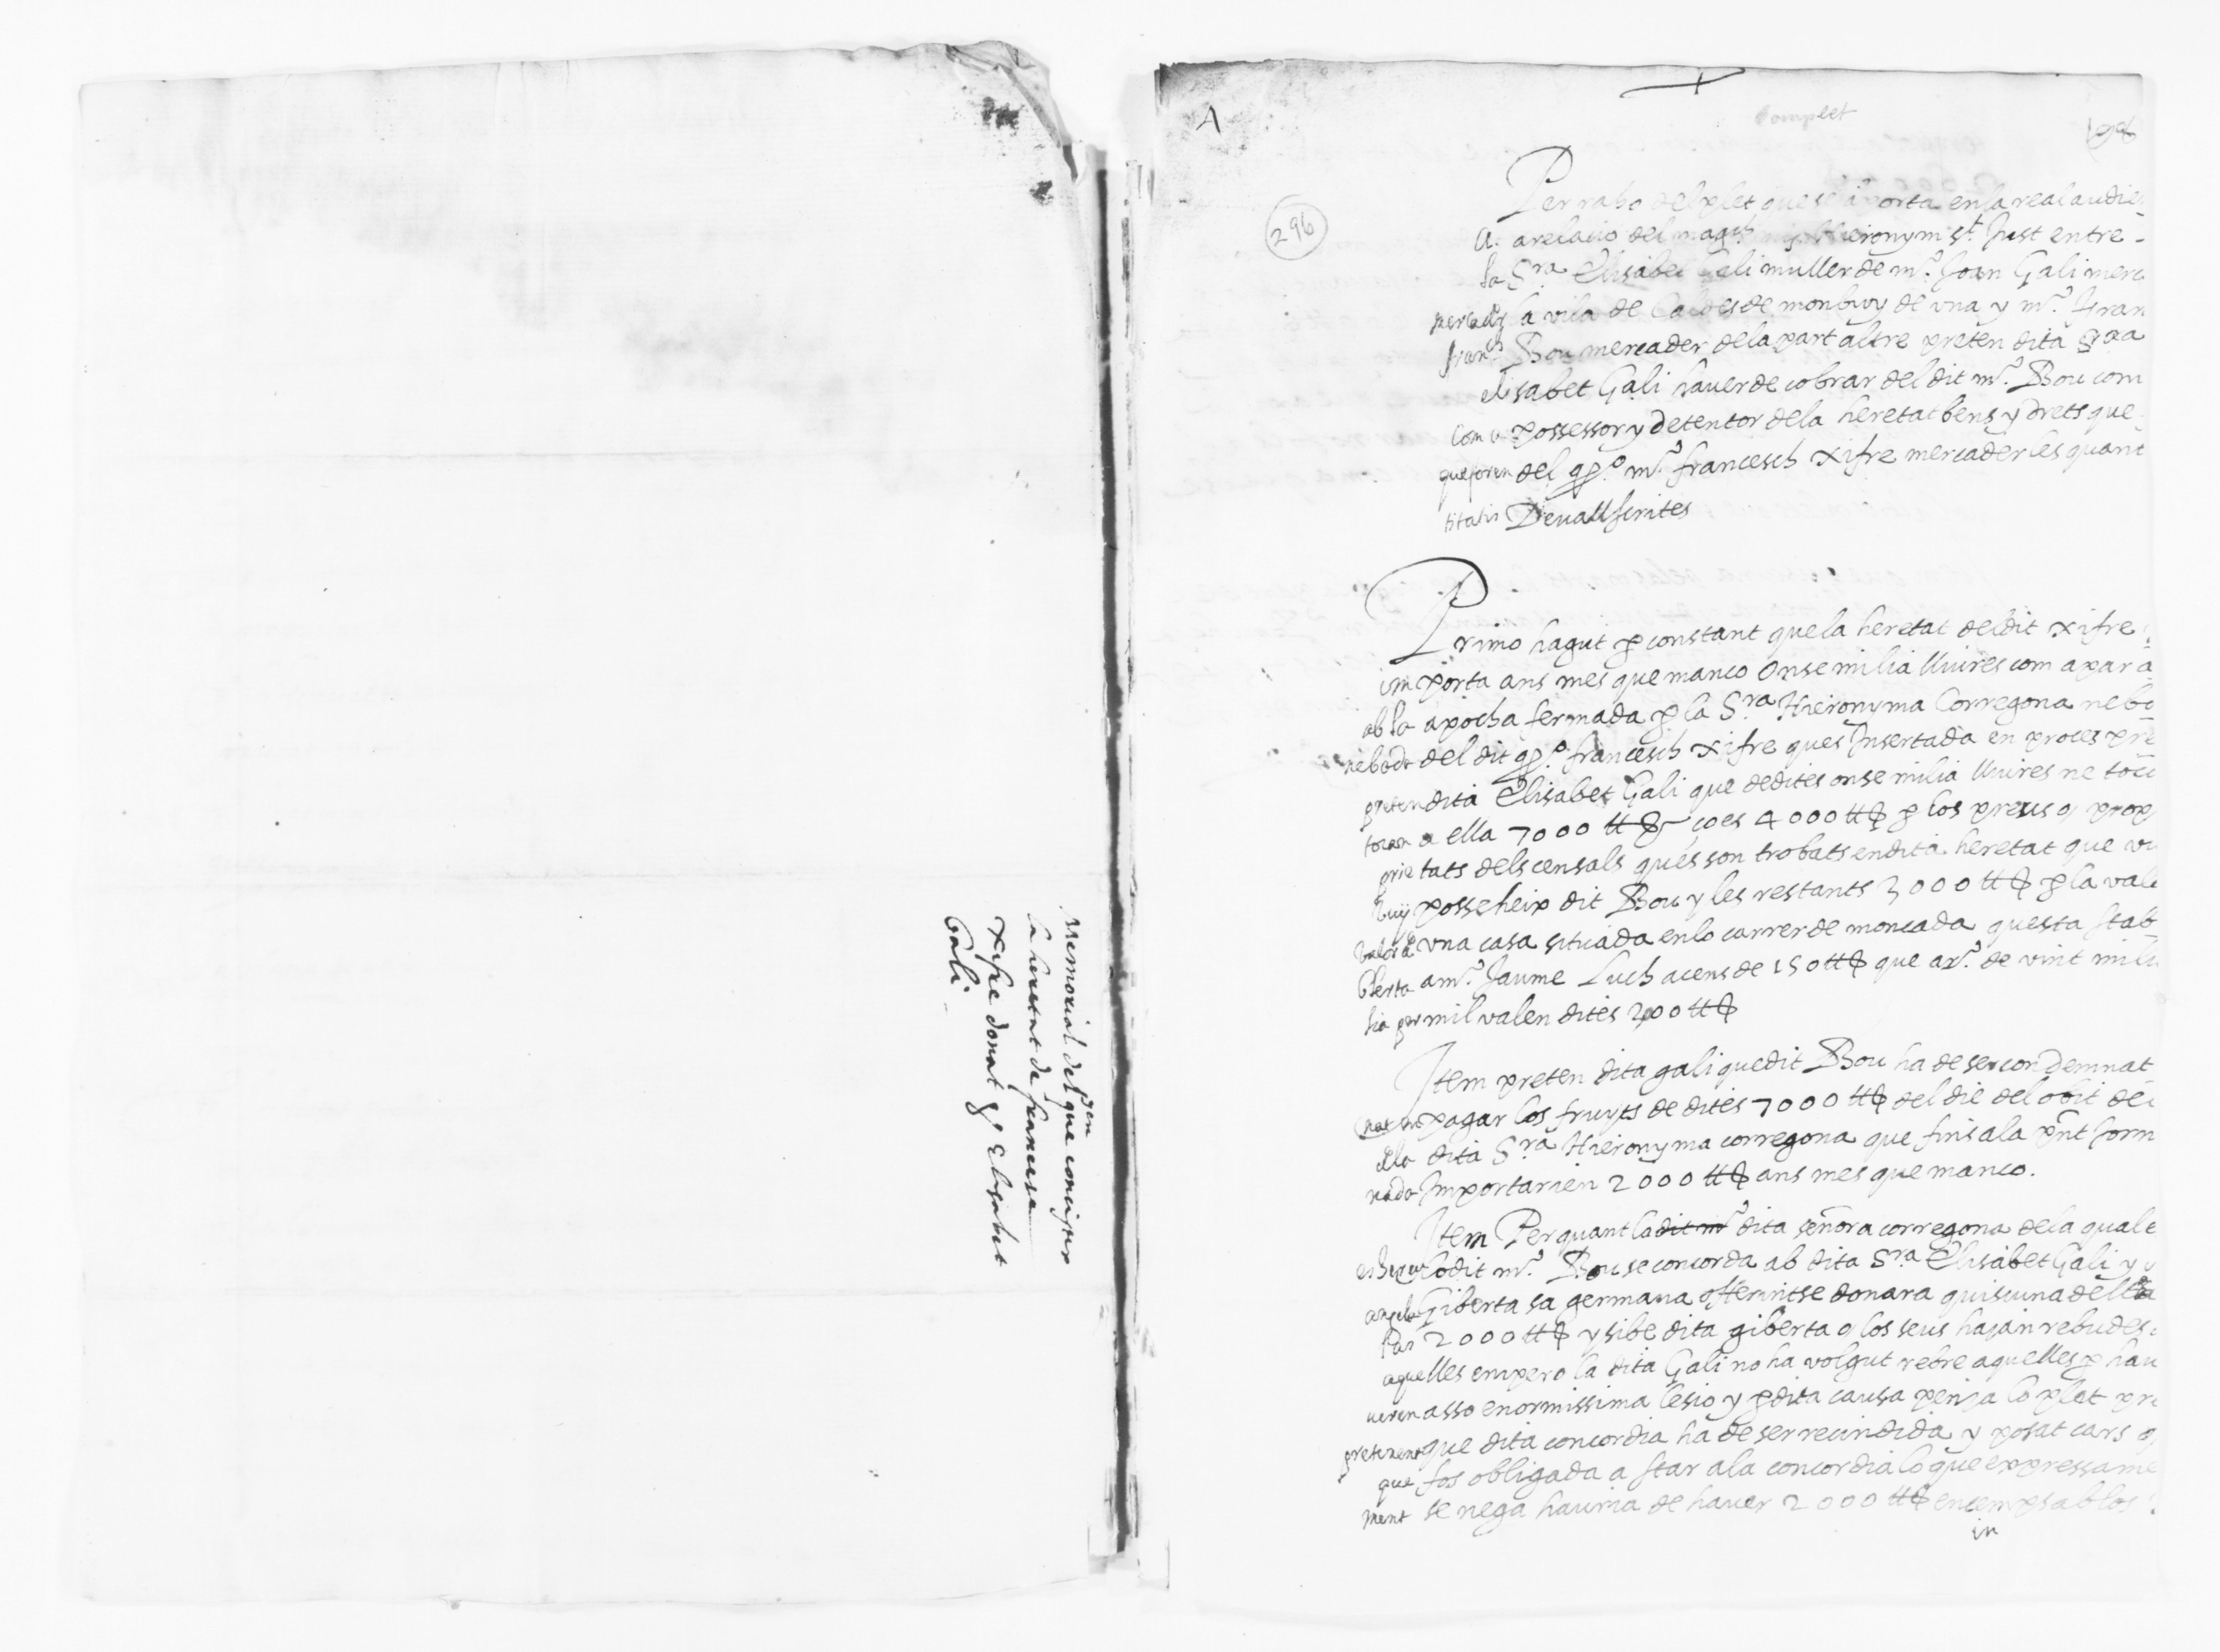 Memorial del que concisteix
en
la heretat de francesc
xifre donat per Elisabet
Gali.
A
Complet
198
296
Per raho del plet que se aporta en la real audie
a. a relacio del magch misser Hieronym St. Just entre
la Sra Elisabet Gali muller de mº. Joan Gali merca
mercader la vila de Caldes de monbuy de una y mº. Fran
franch Bou mercader de la part altre preten dita Sra
elisabet Gali haver de cobrar del dit mº. Bou com
com a possessor y detentor dela heretat bens y drets que
que foren del qº. mº. francesch xifre mercader les quant
titatis Devall scrites
Primo hagut p constant que la heretat del dit xifre
importa ans mes que manco onse milia lliures com apar a
ab la apocha fermada p la Sra Hieronyma Corregona nebo
neboda del dit qº. francesch xifre ques Insertada en proces pre
preten dita Elisabet Gali que de dites onse milia lliures ne toca
tocan a ella 7000 ₶ çoes 4000 ₶ p los preus o prop
prietats dels censals ques son trobats en dita heretat que vu
huy posseheix dit Bou y les restants 3000 ₶ p la valo
valor de una casa situada en lo carrer de moncada questa stab
blerta a mº. Jaume Luch a cens de 150 ₶ que a rº. de vint mili
lia per mil valen dites 3000 ₶
Item preten dita gali que dit Bou ha de ser condemnat
nat en pagar los fruyts de dites 7000 ₶ del die del obit de
ella dita Sra Hieronyma corregona que fins ala pnt jorn
nada Importarien 2000 ₶ ans mes que manco.
Item Per quant la dit mº dita señora corregona dela qual e
es hereu lo dit mº. Bou se concorda ab dita Sra Elisabet Gali y
angela Giberta sa germana offerintse donara quiscuna dellas
las 2000 ₶ y si be dita giberta o los seus hajan rebudes
aquelles empero la dita Gali no ha volgut rebre aquelles p hav
veren asso enormissima lesio y p dita causa penja lo plet pre
pretenent que dita concordia ha de ser recindida y posat cars q
que fos obligada a star ala concordia lo que expressame
ment se nega hauria de haver 2000 ₶ encemps ab los
in